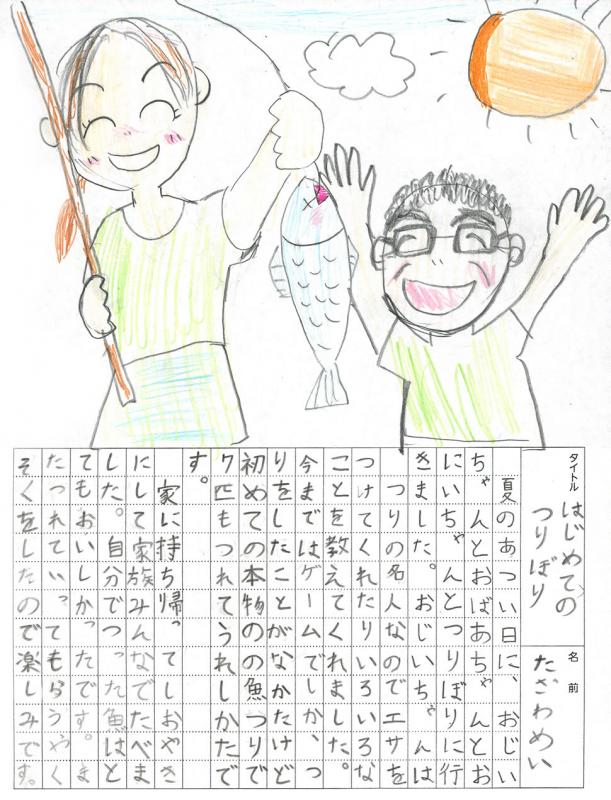 タイトル
はじめての
つりぼり
名前
たざわめい
夏のあつい日に、おじい
ちゃんとおばあちゃんとお
にいちゃんとつりぼりに行
きました。おじいちゃんは
つりの名人なのでエサを
つけてくれたりいろいろな
ことを教えてくれました。
今まではゲームでしか、つ
りをしたことがなかたけど
初めての本物のの魚つりで
7匹もつれてうれしかたで
す。
家に持ち帰ってしおやき
にして家族みんなでたべま
した。自分でつった魚はと
てもおいしかったです。ま
たつれていってもらうやく
そくをしたので楽しみです。